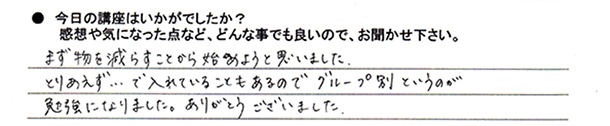 ● 今日の講座はいかがでしたか？
感想や気になった点など、どんな事でも良いので、お聞かせ下さい。
まず物を減らすことから始めようと思いました.
とりあえず…で入れていることもあるのでグループ別というのが
勉強になりました。ありがとうございました.